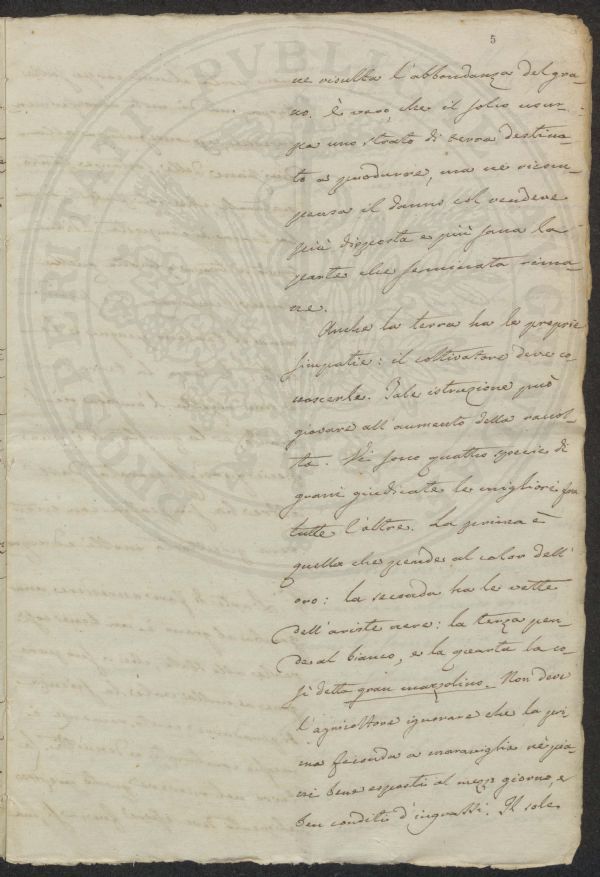 5
ne risulta l'abbondanza del gra-
no. È vero, che il solco usur-
pa uno strato di terra destina-
to a produrre, ma ne ricom-
pensa il danno col rendere
più disposta e più sana la
parte che seminata rima-
ne.
Anche la terra ha le proprie
simpatie: il coltivatore deve co-
noscerle. Tale istruzione può
giovare all'aumento della raccol-
ta. Vi sono quattro specie di
grani giudicate le migliori fra
tutte l'altre. La prima è
quella che pende al color dell'
oro: la seconda ha le vette
dell'ariste nere: la terza pen-
de al bianco, e la quarta la co-
sì detta gran marzolino. Non deve
l'agricoltore ignorare che la pri-
ma feconda a maraviglia ne' pia-
ni bene esposti al mezzo giorno, e
ben conditi d'ingrassi. Il sole